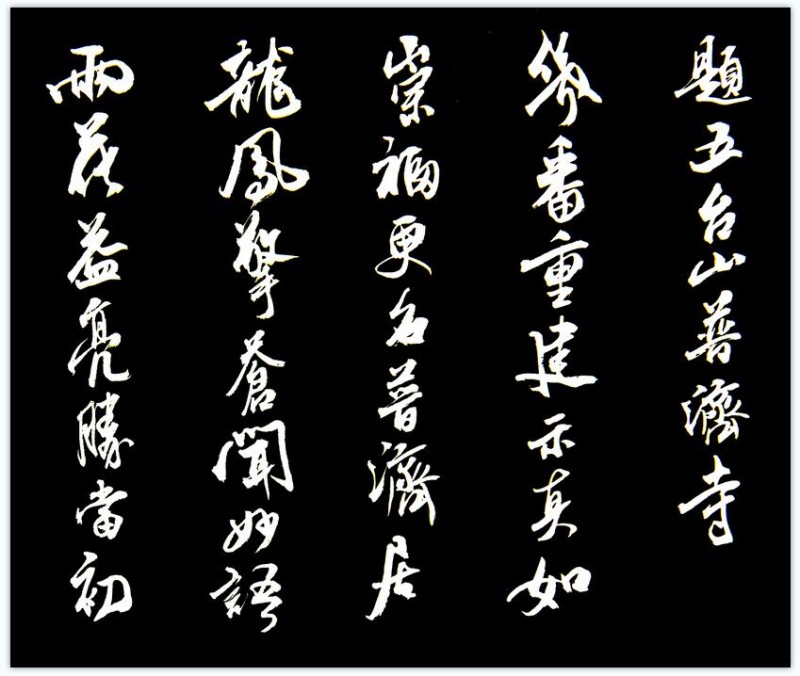 題五台山普濟寺
幾番重建示真如
崇福更名普濟居
龍鳳擎蒼聞妙語
雨花益亮勝當初